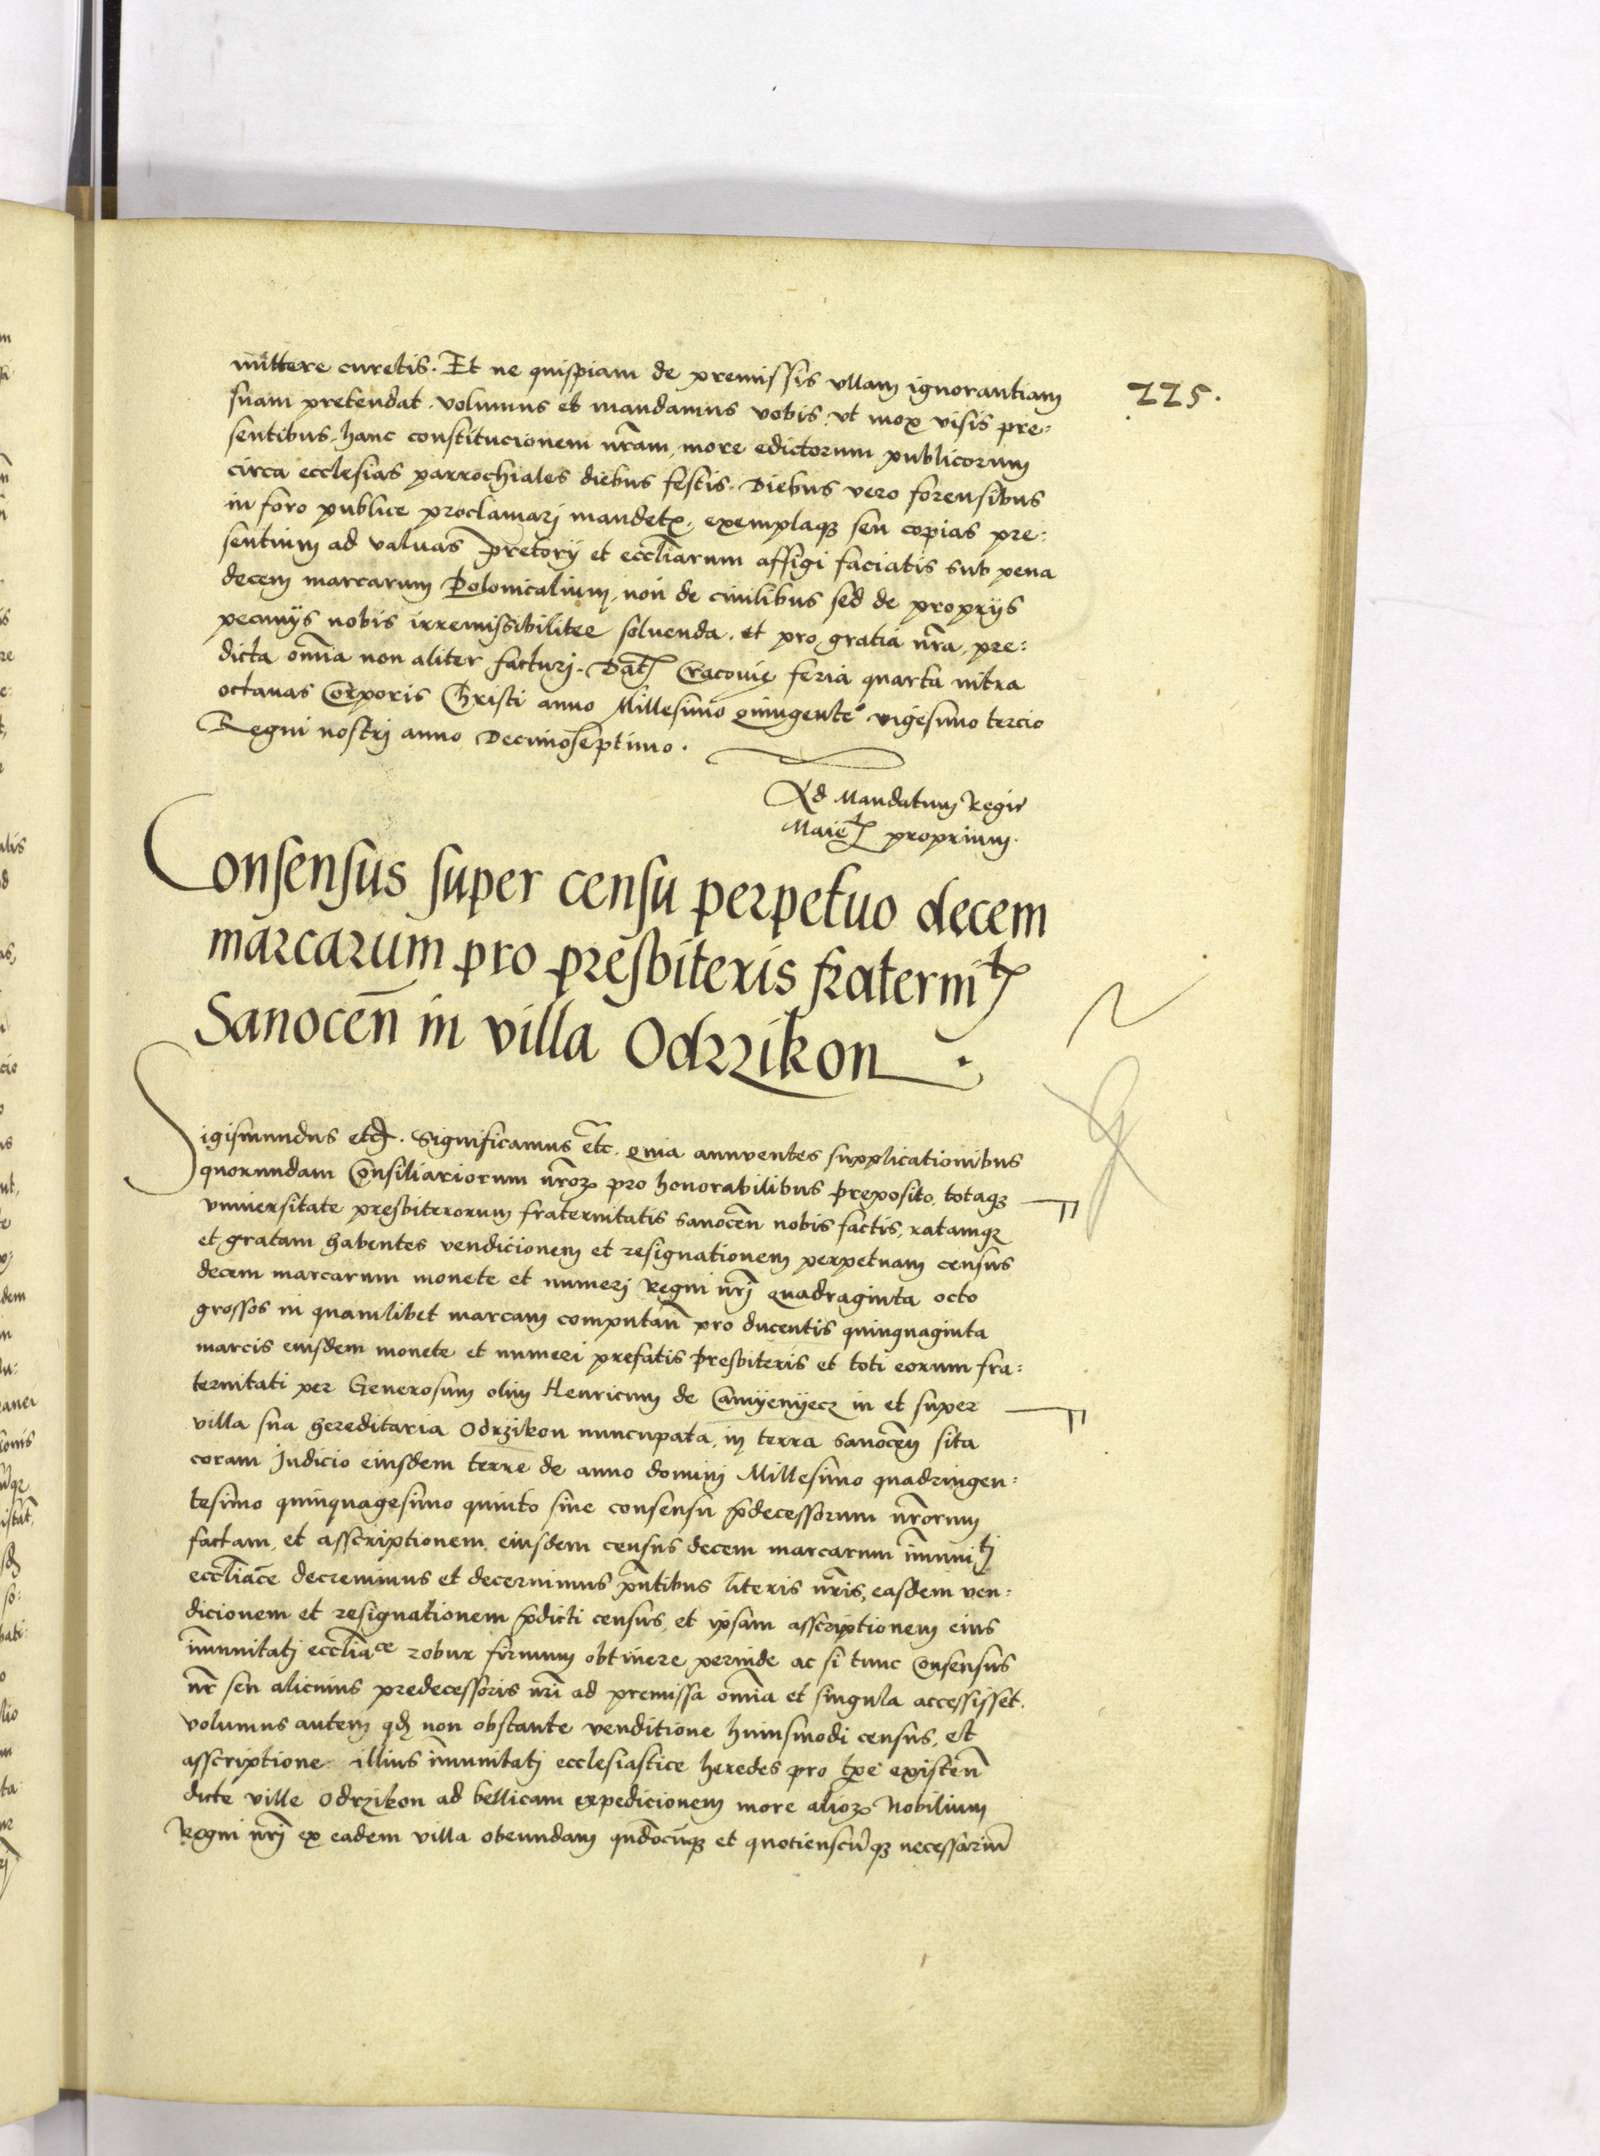 225.
mittere curetis. Et ne quispiam de premissis ullam ignorantiam
suam pretendat. volumus et mandamus vobis, ut mox visis pre=
sentibus, hanc constitucionem nr̄am, more edictorum publicorum
circa ecclesias parrochiales diebus festis. Diebus vero forensibus
in foro publice proclamari mandetis, exemplaque seu copias pre=
sentium ad valuas pretorij et eccl̄iarum affigi faciatis sub pena
decem marcarum Polonicalium, non de ciuilibus sed de proprijs
pecunijs nobis irremissibiliter soluenda. et pro gratia nr̄a, pre=
dicta om̄ia non aliter facturi. Dat̄ Cracouię feria quarta infra
octauas Corporis Christi anno Millesimo quingente° vigesimo tercio
Regni nostri anno Decimoseptimo.
Ad Mandatum Regie
Maiet̄ proprium.
Consensus super censu perpetuo decem
marcarum pro presbiteris fraternit̄
Sanocen̄ in villa Odrzikon.
Sigismundus etc. Significamus etc. quia annuentes supplicationibus
quorundam Consiliariorum nr̄oꝝ pro honorabilibus preposito, totaque
vniuersitate presbiterorum fraternitatis Sanocen̄ nobis factis, ratamque
et gratam habentes vendicionem et resignationem perpetuam census
decem marcarum monete et numeri Regni nr̄i quadraginta octo
grossos in quamlibet marcam computan̄ pro ducentis quinquaginta
marcis eiusdem monete et numeri prefatis presbiteris et toti eorum fra=
ternitati per Generosum olim Henricum de Camyenyecz in et super
villa sua hereditaria Odrzikon nuncupata, in terra Sanocen̄ sita
coram Judicio eiusdem terre de anno domini Millesimo quadringen=
tesimo quinquagesimo quinto sine consensu p̄decessorum nr̄orum
factam, et asscriptionem eiusdem census decem marcarum im̄unitti
eccl̄iace decreuimus et decernimus pn̄tibus literis nr̄is, easdem ven=
dicionem et resignationem p̄dicti census, et ipsam asscriptionem eius
im̄unitati eccl̄iace robur firmum obtinere perinde ac si tunc Consensus
nr̄ seu alicuius predecessoris nr̄i ad premissa om̄ia et singula accessisset.
volumus autem qd̄ non obstante venditione huiusmodi census, et
asscriptione illius im̄unitati ecclesiastice heredes pro tp̄e existen̄
dicte ville Odrzikon ad bellicam expedicionem more alioꝝ Nobilium
Regni nr̄i ex eadem villa obeundam qn̄docunque et quotienscunque necessarium̄